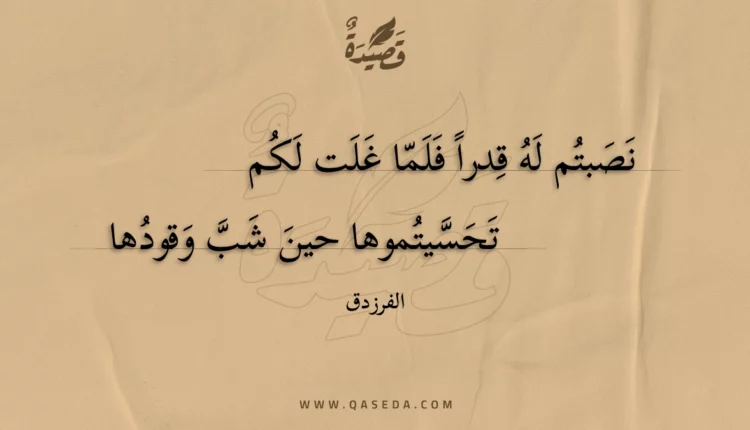 قَصِيدَةٌ
نَصَبتُم لَهُ قِدراً فَلَمّا غَلَت لَكُم
تَحَسَّيتُموها حينَ شَبَّ وَقودُها
الفرزدق
WWW.QASEDA.COM